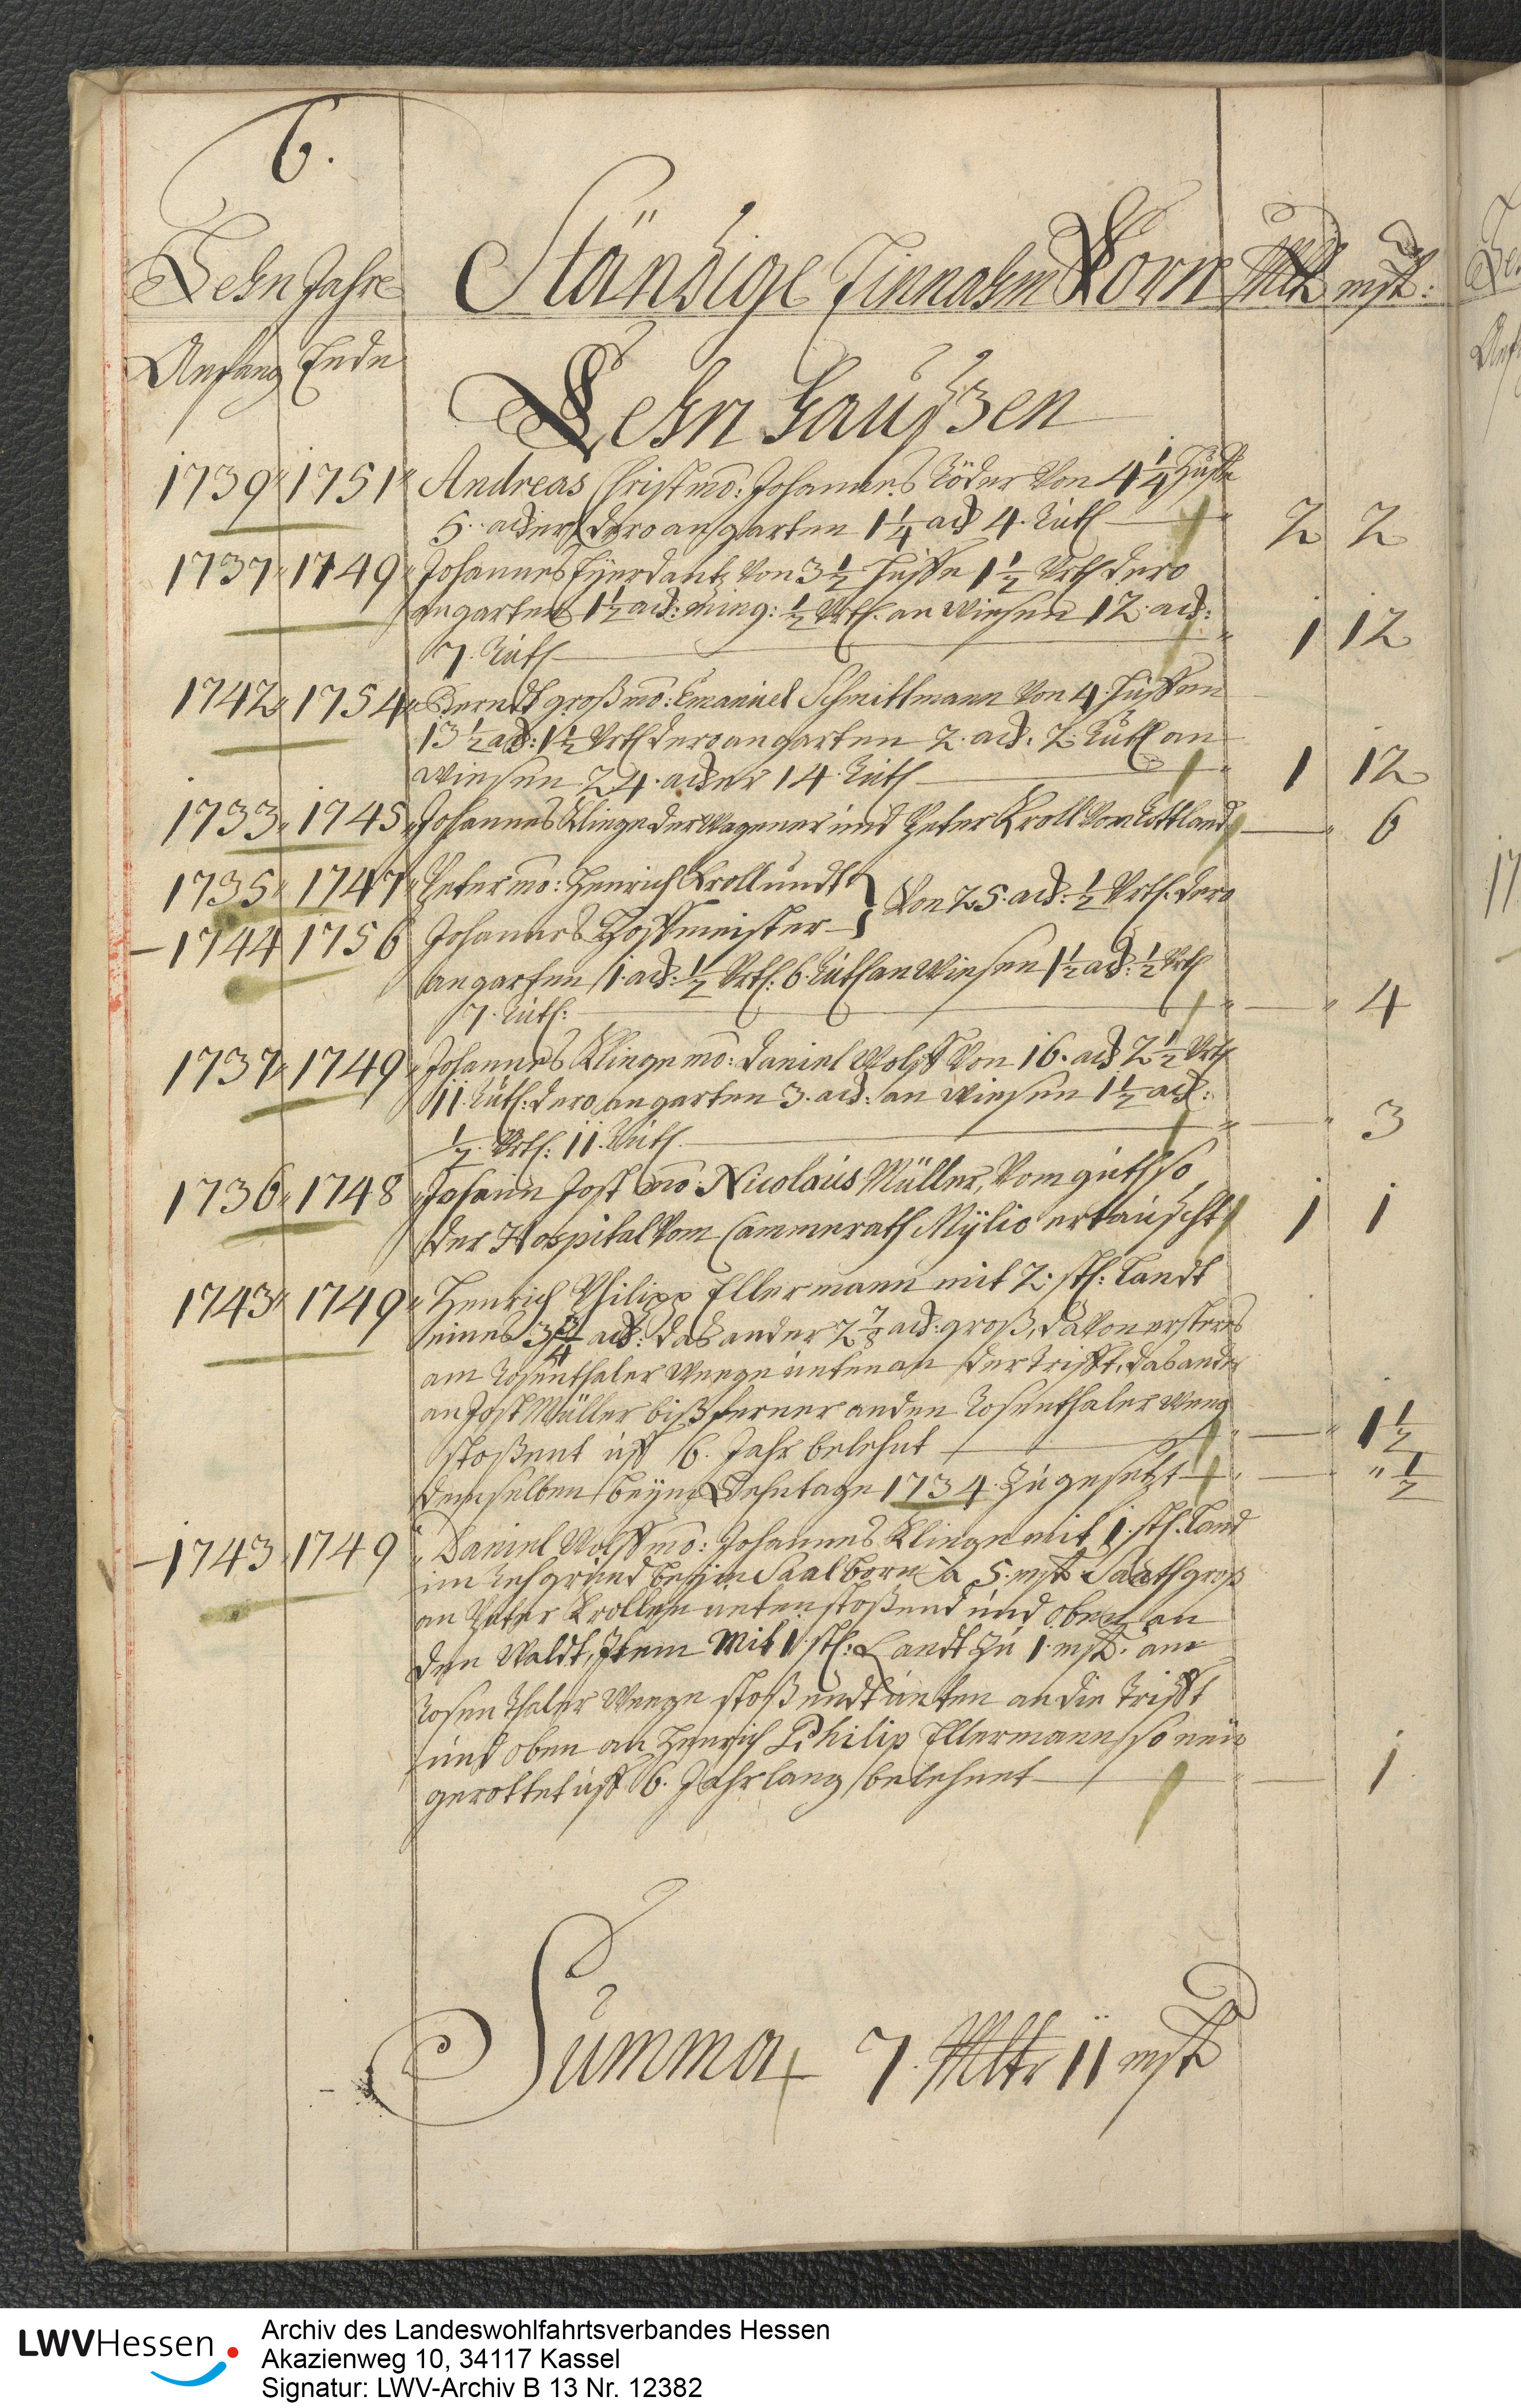 6.
Lehn Jahre Ständige Einnahm Korn Mltr mst:
Anfang Ende
Lehn Haußzen
1739 1751 Andreas Christ mo: Johannes Röder Von 4 1/4 Huffe
5. acker dero an garten 1 1/4 ack 4. Ruth 2 2
1737 1749 Johannes Eyerdantz Von 3 1/2 Huffe 1 1/2 Vrtl dero
an garten 1 1/2 ack: ming: 1/2 Vrtl. an Wiesen 12. ack:
7. Ruth 1 12
1742 1754 Berndt groß mo: Emanuel Schmittmann Von 4 Huffen
13 1/2 ack: 1 1/2 Vrtl dero an garten 2. ack. 2. Ruth an
Wiesen 24. acker 14. Ruth 1 12
1733 1745 Johannes Klinge der Wagener und Peter Kroll Vom Rottland 6
1735 1747 Peter mo: Henrich Kroll undt } Von 25. ack: 1/2 Vrtl. dero
1744 1756 Johannes Hoffmeister
an garten 1. ack: 1/2 Vrtl: 6. Ruth an Wiesen 1 1/2 ack: 1/2 Vrtl
7. Ruth: 4
1737 1749 Johannes Klinge mo: Daniel Wolff Von 16. ack 2 1/2 Vrtl
11. Ruth: dero an garten 3. ack: an Wiesen 1 1/2 ack:
1/2 Vrtl: 11. Ruth 3
1736 1748 Johann Jost mo: Nicolaus Müller, Vom guth so
der Hospital Vom Cammerrath Mylio ertauscht 1 1
1743 1749 Henrich Philipp Ellermann mit 2. stk: Landt
eines 3 3/4 ack: das ander 2 7/8 ack: groß, davon ersteres
am Rosenthaler Weege unten an der Trifft, das ander
an Jost Müller biß ferner an den Rosenthaler Weeg
stoßent uff 6. Jahr belehnt 1 1/2
demselben beym Lehntage 1734. zugesetzt " 1/2
1743 1749 Daniel Wolff mo: Johannes Klinge mit 1. stk. Land
im Rehgrund beym Saalborn à 5. mst. Saath groß
an Peter Krollen unten stoßend und oben an
den Waldt, Item Mit 1. stk: Landt zu 1. mst. am
Rosenthaler Weege stoß undt unten an die Trifft
und oben an Henrich Philip Ellermann so neu
gerottet uff 6. Jahr lang belehnet 1
Summa 7. Mltr 11 mst
LWVHessen
Archiv des Landeswohlfahrtsverbandes Hessen
Akazienweg 10, 34117 Kassel
Signatur: LWV-Archiv B 13 Nr. 12382